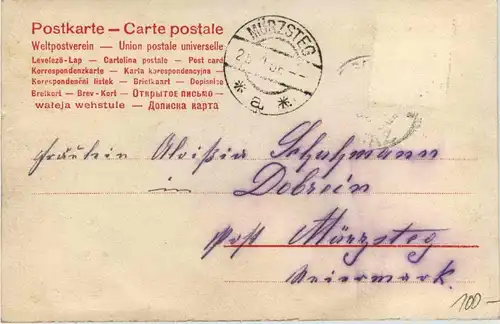 Postkarte – Carte postale
Weltpostverein – Union postale universelle
Levelező-Lap – Cartolina postale – Post card
Korrespondenzkarte – Karta korespondencyjna –
Korespondenční lístek – Briefkaart – Dopisnice
Brefkort – Brev-Kort – Открытое письмо –
waleja wehstule – Дописна карта
MÜRZSTEG
* a *
Fräulein Aloisia Schuhmann
in
Dobrein
Post Mürzsteg
Steiermark.
100–